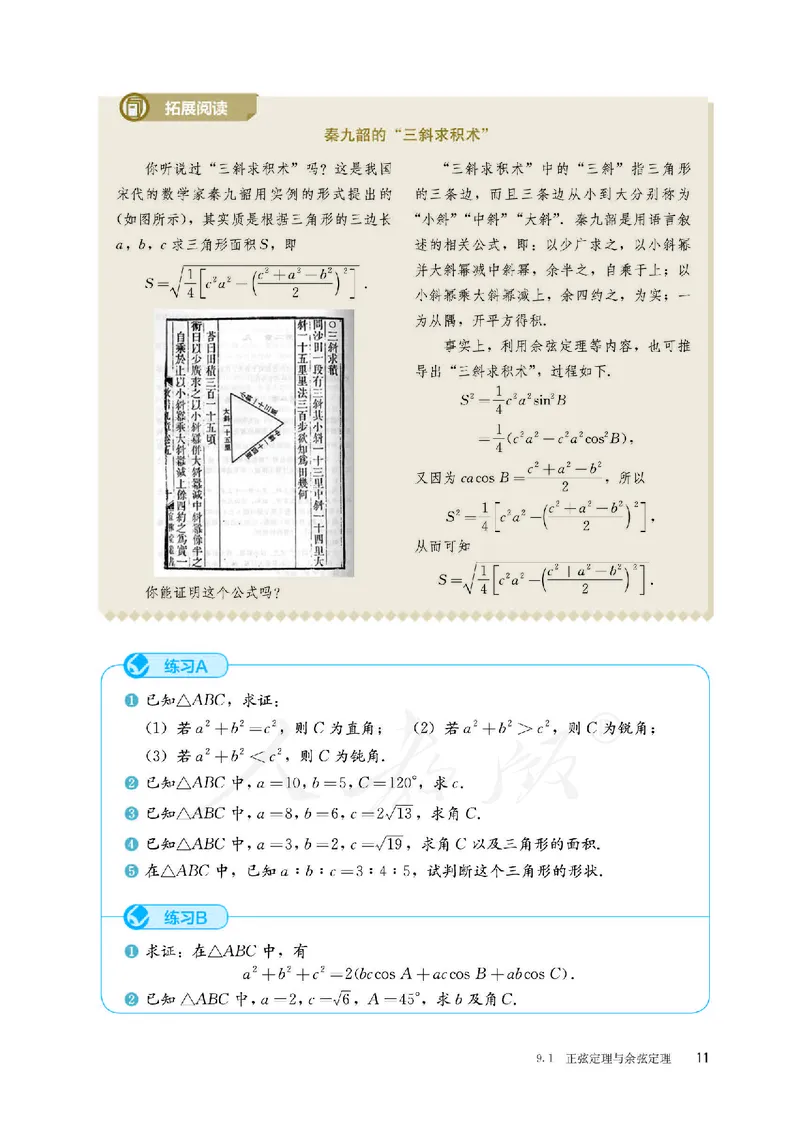 拓展阅读
秦九韶的“三斜求积术”
你听说过“三斜求积术”吗？这是我国
宋代的数学家秦九韶用实例的形式提出的
（如图所示），其实质是根据三角形的三边长
a，b，c求三角形面积S，即
S=√(1/4[c²a²-((c²+a²-b²)/2)²]).
〇三斜求積
問沙田一段有三斜其小斜一十三里中斜一十四里大
斜一十五里里法三百步欲知爲田幾何
答曰田積三百一十五頃
術曰以少廣求之以小斜冪併大斜冪減中斜冪餘半之
自乘於上以小斜冪乘大斜冪減上餘四約之爲實一
小斜一十三里
大斜一十五里
中斜一十四里
你能证明这个公式吗？
“三斜求积术”中的“三斜”指三角形
的三条边，而且三条边从小到大分别称为
“小斜”“中斜”“大斜”．秦九韶是用语言叙
述的相关公式，即：以少广求之，以小斜幂
并大斜幂减中斜幂，余半之，自乘于上；以
小斜幂乘大斜幂减上，余四约之，为实；一
为从隅，开平方得积．
事实上，利用余弦定理等内容，也可推
导出“三斜求积术”，过程如下．
S²=1/4c²a²sin²B
=1/4(c²a²-c²a²cos²B),
又因为cacos B=(c²+a²-b²)/2，所以
S²=1/4[c²a²-((c²+a²-b²)/2)²],
从而可知
S=√(1/4[c²a²-((c²+a²-b²)/2)²]).
练习A
❶ 已知△ABC，求证：
（1）若a²+b²=c²，则C为直角； （2）若a²+b²>c²，则C为锐角；
（3）若a²+b²<c²，则C为钝角．
❷ 已知△ABC中，a=10，b=5，C=120°，求c．
❸ 已知△ABC中，a=8，b=6，c=2√13，求角C．
❹ 已知△ABC中，a=3，b=2，c=√19，求角C以及三角形的面积．
❺ 在△ABC中，已知a∶b∶c=3∶4∶5，试判断这个三角形的形状．
练习B
❶ 求证：在△ABC中，有
a²+b²+c²=2(bccos A+accos B+abcos C).
❷ 已知△ABC中，a=2，c=√6，A=45°，求b及角C．
人教版®
9.1 正弦定理与余弦定理 11